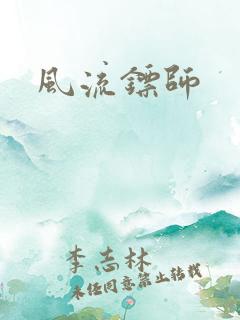 風流鏢師
李志林
未经同意禁止转载